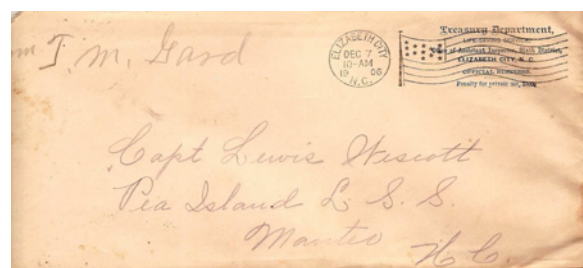 T. M. Gard
ELIZABETH CITY
DEC 7
10-AM
19 06
N.C.
Treasury Department,
LIFE-SAVING SERVICE,
Office of Assistant Inspector, Sixth District,
ELIZABETH CITY, N. C.
OFFICIAL BUSINESS.
Penalty for private use, $300.
Capt Lewis Wescott
Pea Island L. S. S.
Manteo
N. C.